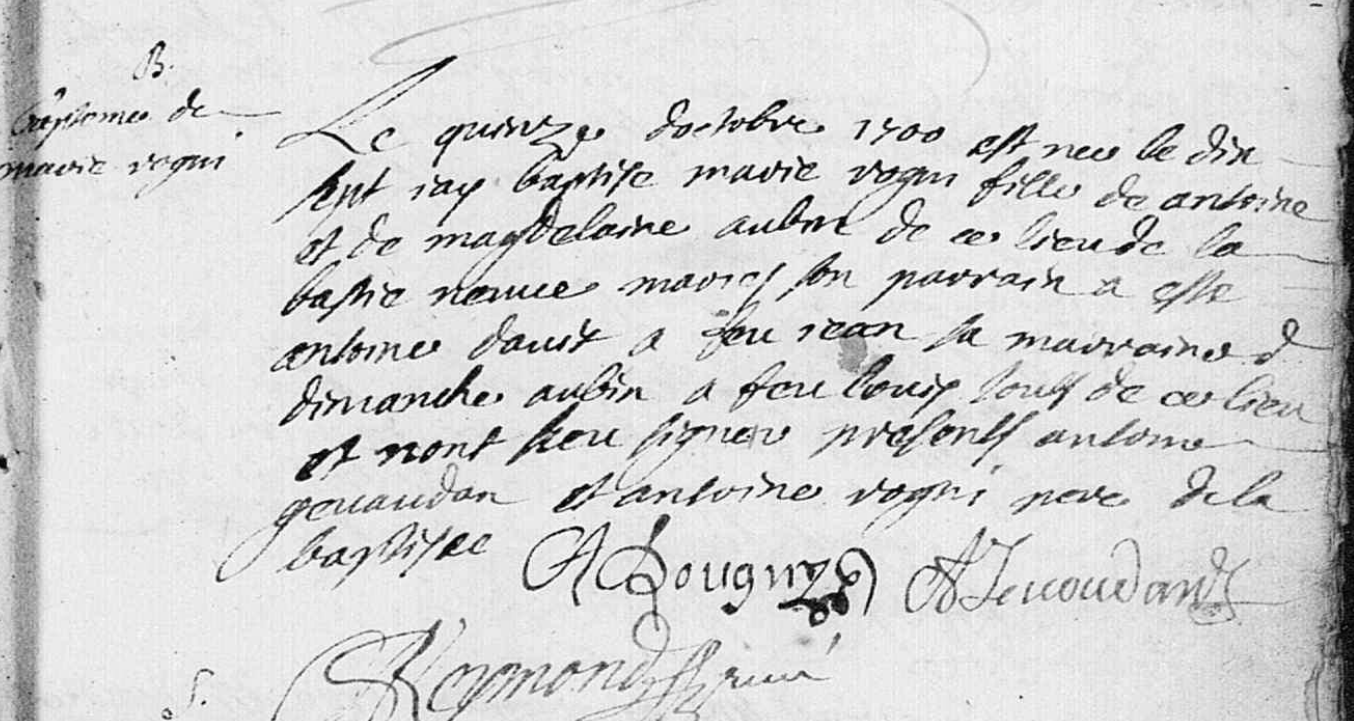 B.
bapteme de
marie rogui
Le quinze doctobre 1700 est nee le dix
sept iay baptise marie rogui fille de antoine
et de magdelaine aubin de ce lieu de la
bastie neuve maries son parrain a este
antoine davit a feu iean sa marraine d
dimanche aubin a feu louis tous de ce lieu
et nont sceu signer presents antoine
gevaudan et antoine rogui pere de la
baptisee
A Rouguy A Jevoudan
Reymond